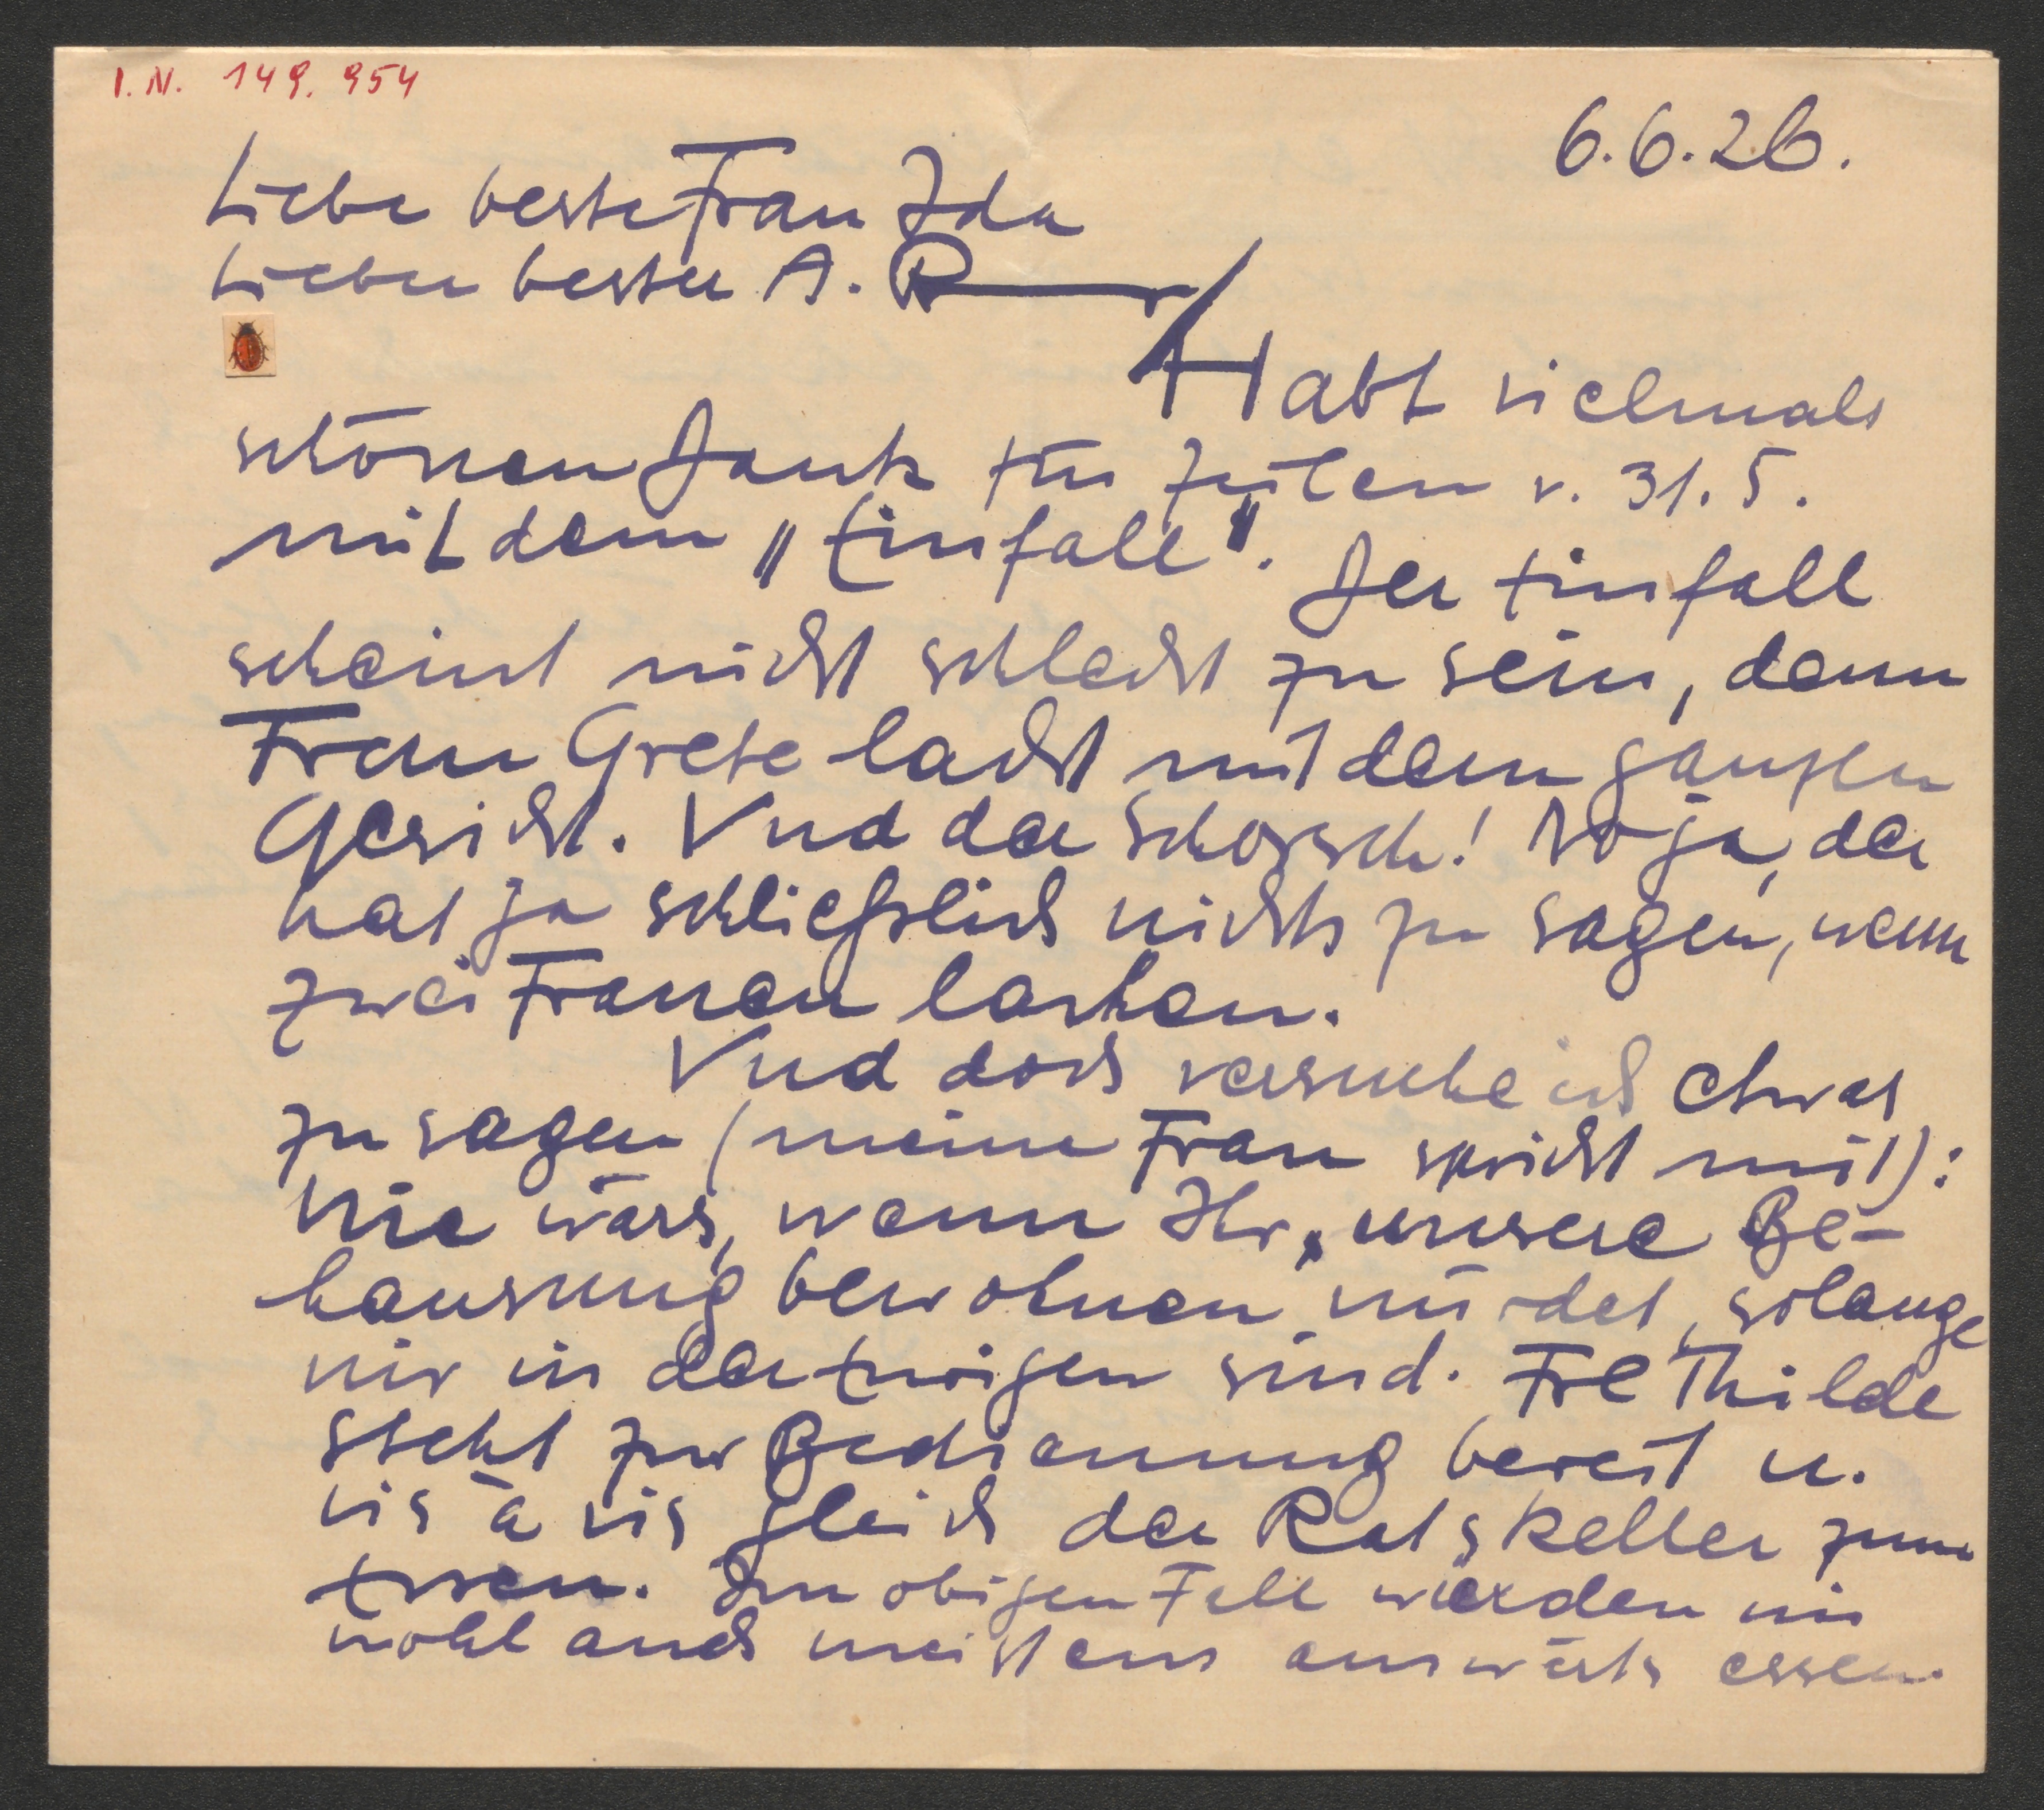 I.N. 149.954
6.6.26.
Liebe beste Frau Ida
Lieber bester A. R
Habt vielmals
schönen Dank für Zeilen v. 31.5.
mit dem „Einfall". Der Einfall
scheint nicht schlecht zu sein, denn
Frau Grete lacht mit dem ganzen
Gesicht. Und der Schorsch! No ja, der
hat ja schließlich nichts zu sagen, wenn
zwei Frauen lachen.
Und doch versuche ich etwas
zu sagen (meine Frau spricht mit):
Wie wärs, wenn Ihr, unsere Be-
hausung bewohnen würdet, solange
wir in der sind. Frl Thilde
steht zur Bedienung bereit u.
vis à vis gleich der Ratskeller zum
Essen. Im obigen Fall würden wir
wohl auch meistens auswärts essen.